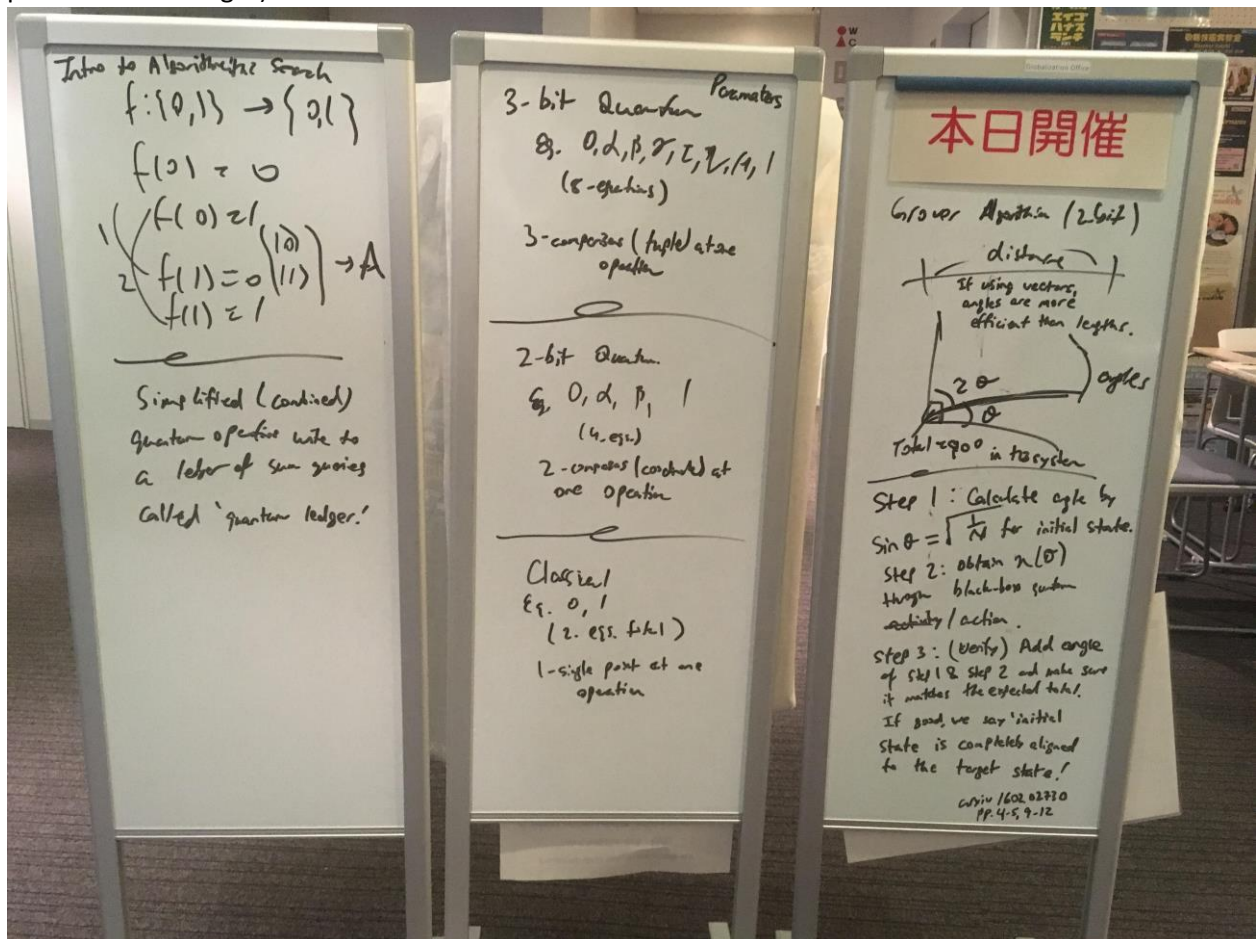 Intro to Algorithmic Search
f:{0,1} → {0,1}
f(0) = 0
1 f(0) = 1
2 f(1) = 0 (|0⟩ |1⟩) → A
f(1) = 1
Simplified (combined)
quantum operations write to
a ledger of sum queries
called 'quantum ledger.'
3-bit Quantum Parameters
(8-equations)
operation
2-bit Quantum.
Eg. 0, α, β, 1
(4. eqs.)
one operation
Classical
Eg. 0, 1
(2. eqs. total)
1-single point at one
operation
Globalization Office
本日開催
Grover Algorithm (2-bit)
distance
If using vectors,
angles are more
efficient than lengths.
2θ
angles
θ
Total = 90° in the system
Step 1: Calculate angle by
Sin θ = √1/N for initial state.
Step 2: obtain n(θ)
through black-box quantum
activity / action.
Step 3: (Verify) Add angle
of Step 1 & Step 2 and make sure
it matches the expected total.
If good, we say 'initial
state is completely aligned
to the target state.'
arxiv 1602.02730
pp. 4-5, 9-12